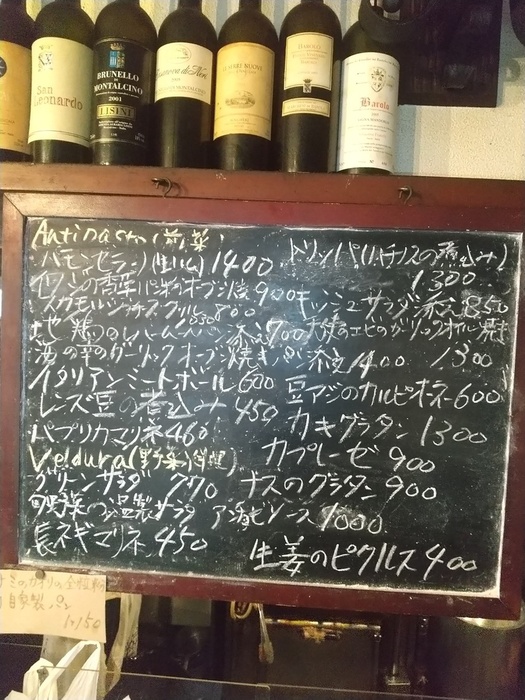 San Leonardo
BRUNELLO
MONTALCINO
2001
Barolo
BAROLO
Antipasto (前菜)
ハモンセラノ(生ハム) 1400
パン粉のオーブン焼 900
スカモルツァチーズグリル 800
パン添え 700
海の幸のガーリックオーブン焼きパン添え 1400
イタリアンミートボール 600
レンズ豆の煮込み 450
パプリカマリネ 460
Verdura(野菜料理)
グリーンサラダ 770
旬野菜の温製サラダ アンチョビソース 1000
長ネギマリネ 450
トリッパ(ハチノスの煮込み)
1300
キッシュ サラダ添え 850
エビのガーリックオイル焼き
1300
豆アジのカルピオーネ 600
カキグラタン 1300
カプレーゼ 900
ナスのグラタン 900
生姜のピクルス 400
自家製パン
150